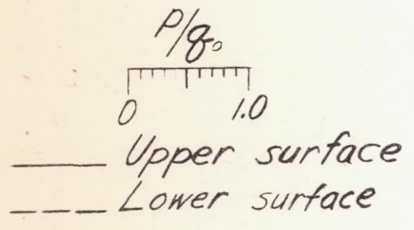 P/q₀
0 1.0
Upper surface
Lower surface